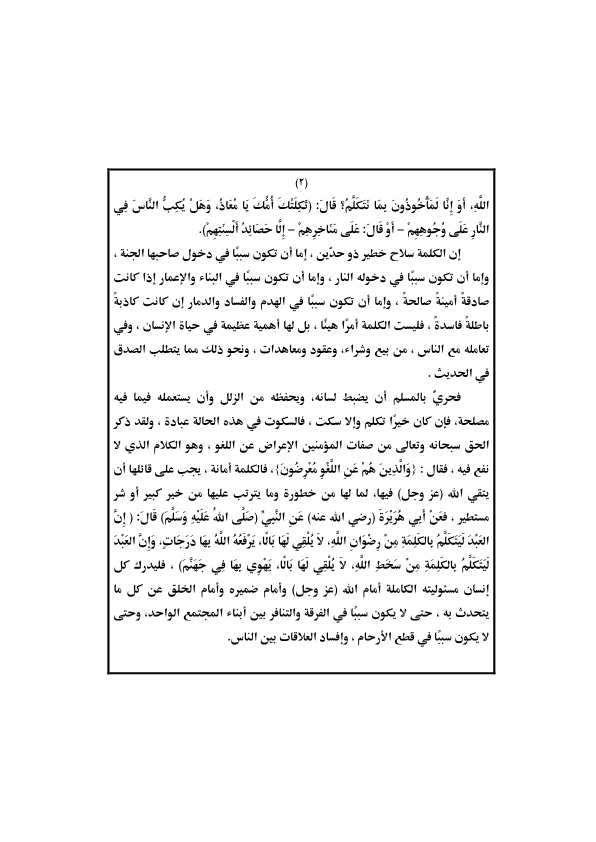 (٢)
اللَّهِ، أَوَ إِنَّا لَمَأْخُوذُونَ بِمَا نَتَكَلَّمُ؟ قَالَ: (ثَكِلَتْكَ أُمُّكَ يَا مُعَاذُ، وَهَلْ يُكِبُّ النَّاسَ فِي
النَّارِ عَلَى وُجُوهِهِمْ – أَوْ قَالَ: عَلَى مَنَاخِرِهِمْ – إِلَّا حَصَائِدُ أَلْسِنَتِهِمْ).
إن الكلمة سلاح خطير ذو حدّين ، إما أن تكون سببًا في دخول صاحبها الجنة ،
وإما أن تكون سببًا في دخوله النار ، وإما أن تكون سببًا في البناء والإعمار إذا كانت
صادقةً أمينةً صالحةً ، وإما أن تكون سببًا في الهدم والفساد والدمار إن كانت كاذبةً
باطلةً فاسدةً ، فليست الكلمة أمرًا هينًا ، بل لها أهمية عظيمة في حياة الإنسان ، وفي
تعامله مع الناس ، من بيع وشراء، وعقود ومعاهدات ، ونحو ذلك مما يتطلب الصدق
في الحديث .
فحريٌّ بالمسلم أن يضبط لسانه، ويحفظه من الزلل وأن يستعمله فيما فيه
مصلحة، فإن كان خيرًا تكلم وإلا سكت ، فالسكوت في هذه الحالة عبادة ، ولقد ذكر
الحق سبحانه وتعالى من صفات المؤمنين الإعراض عن اللغو ، وهو الكلام الذي لا
نفع فيه ، فقال : {وَالَّذِينَ هُمْ عَنِ اللَّغْوِ مُعْرِضُونَ}، فالكلمة أمانة ، يجب على قائلها أن
يتقي الله (عز وجل) فيها، لما لها من خطورة وما يترتب عليها من خير كبير أو شر
مستطير ، فعَنْ أَبِي هُرَيْرَةَ (رضي الله عنه) عَنِ النَّبِيِّ (صَلَّى اللهُ عَلَيْهِ وَسَلَّمَ) قَالَ: ( إِنَّ
العَبْدَ لَيَتَكَلَّمُ بِالكَلِمَةِ مِنْ رِضْوَانِ اللَّهِ، لاَ يُلْقِي لَهَا بَالًا، يَرْفَعُهُ اللَّهُ بِهَا دَرَجَاتٍ، وَإِنَّ العَبْدَ
لَيَتَكَلَّمُ بِالكَلِمَةِ مِنْ سَخَطِ اللَّهِ، لاَ يُلْقِي لَهَا بَالًا، يَهْوِي بِهَا فِي جَهَنَّمَ) ، فليدرك كل
إنسان مسئوليته الكاملة أمام الله (عز وجل) وأمام ضميره وأمام الخلق عن كل ما
يتحدث به ، حتى لا يكون سببًا في الفرقة والتنافر بين أبناء المجتمع الواحد، وحتى
لا يكون سببًا في قطع الأرحام ، وإفساد العلاقات بين الناس.